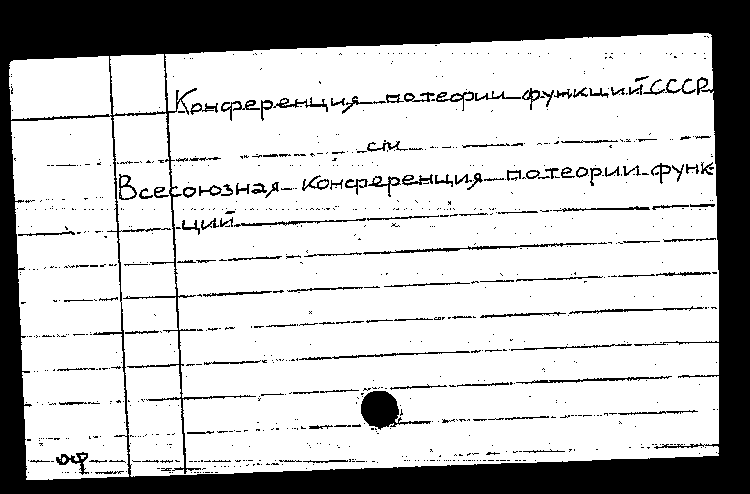 Конференция по теории функций СССР
см
Всесоюзная конференция по теории функ
ций